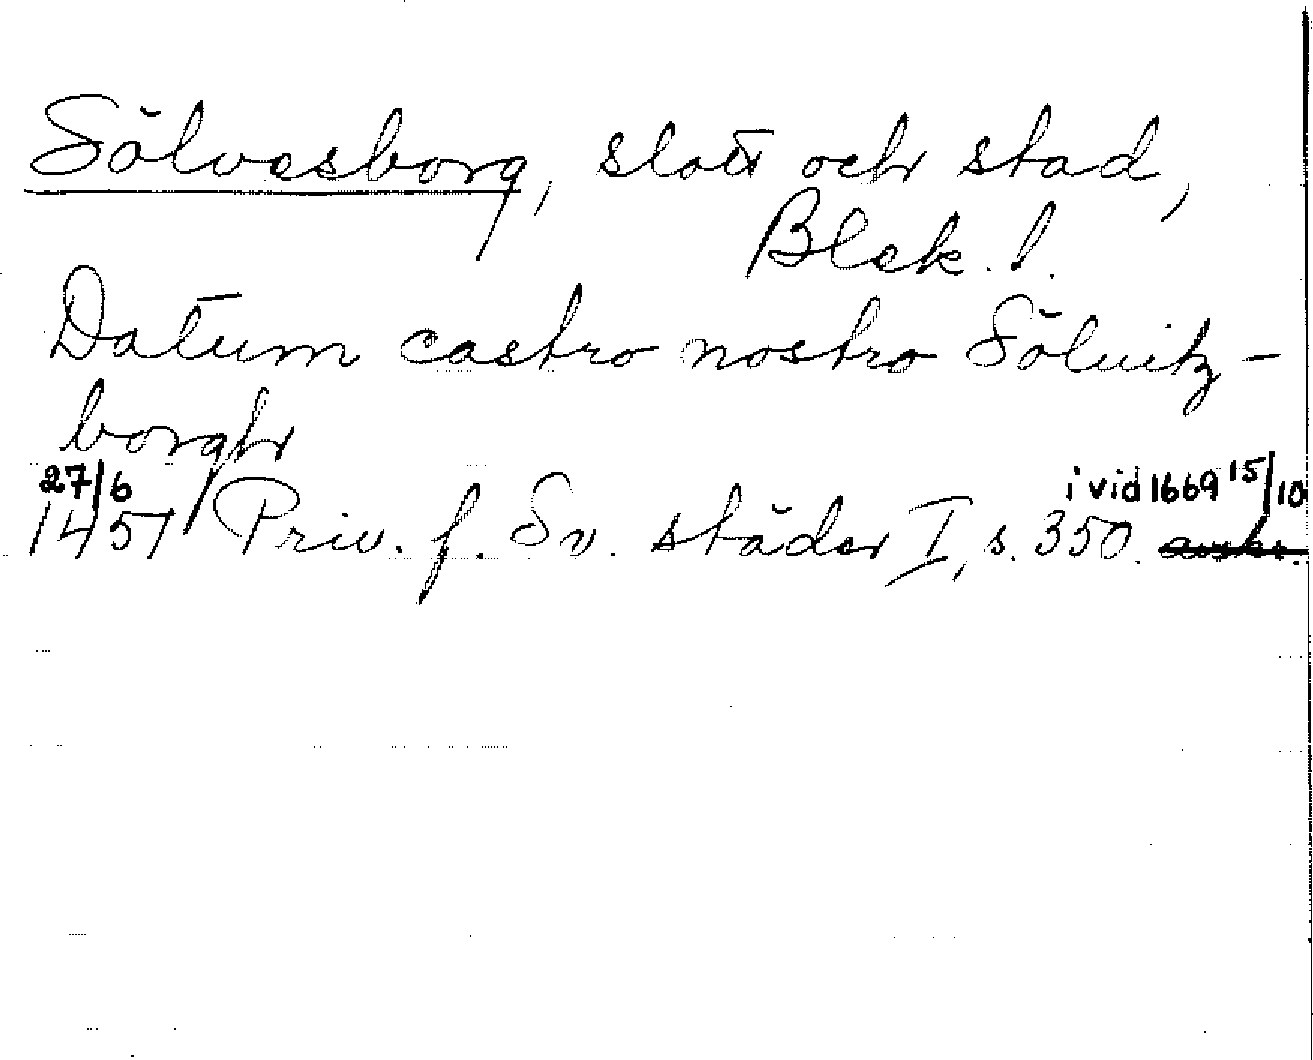 Sölvesborg, slott och stad,
Blek. l.
Datum castro nostro Söluitz-
borgh
27/6 i vid 1669 15/10
1457 Priv. f. Sv. städer I, s. 350.